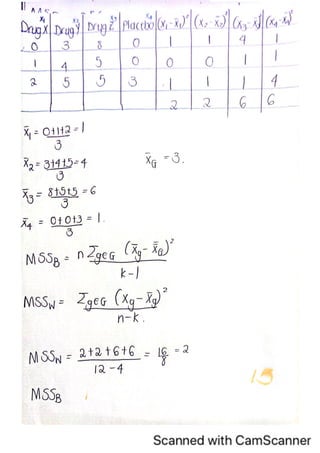 x₁ x₂ x₃ x₄
Drug X Drug Y Drug Z Placebo (x₁-x̄₁)² (x₂-x̄₂)² (x₃-x̄₃)² (x₄-x̄₄)²
0 3 8 0 1 1 4 1
1 4 5 0 0 0 1 1
2 5 5 3 1 1 1 4
2 2 6 6
x̄₁ = 0+1+2 = 1
3
x̄₂ = 3+4+5 = 4 x̄G = 3.
3
x̄₃ = 8+5+5 = 6
3
x̄₄ = 0+0+3 = 1.
3
MSSB = n ΣgεG (x̄g - x̄G)²
k-1
MSSW = ΣgεG (xg - x̄g)²
n-k.
MSSW = 2+2+6+6 = 16 = 2
12-4 8
13
MSSB
Scanned with CamScanner